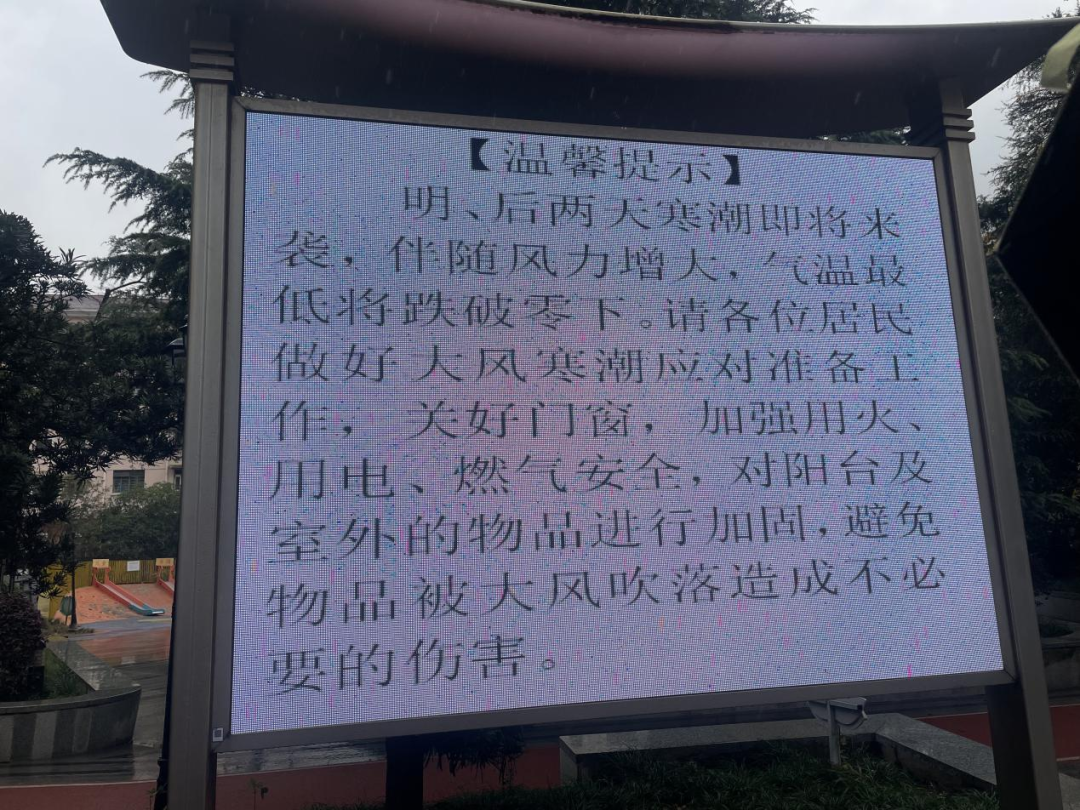 【温馨提示】
明、后两天寒潮即将来
袭，伴随风力增大，气温最
低将跌破零下。请各位居民
做好大风寒潮应对准备工
作，关好门窗，加强用火、
用电、燃气安全，对阳台及
室外的物品进行加固，避免
物品被大风吹落造成不必
要的伤害。